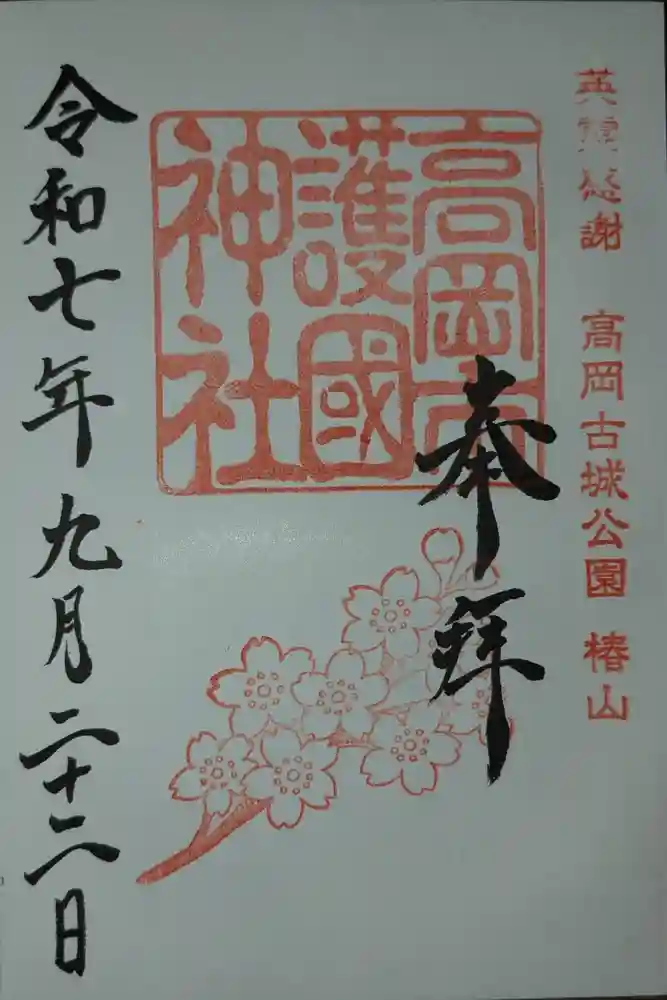 英霊感謝　高岡古城公園　椿山
高岡市
護國
神社
奉拝
令和七年九月二十二日